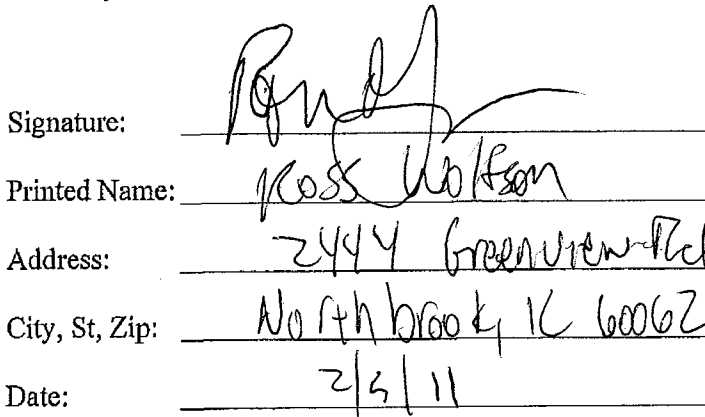 Signature:
Printed Name: Ross Wolfson
Address: 2444 Greenview Rd
City, St, Zip: Northbrook, IL 60062
Date: 2/5/11